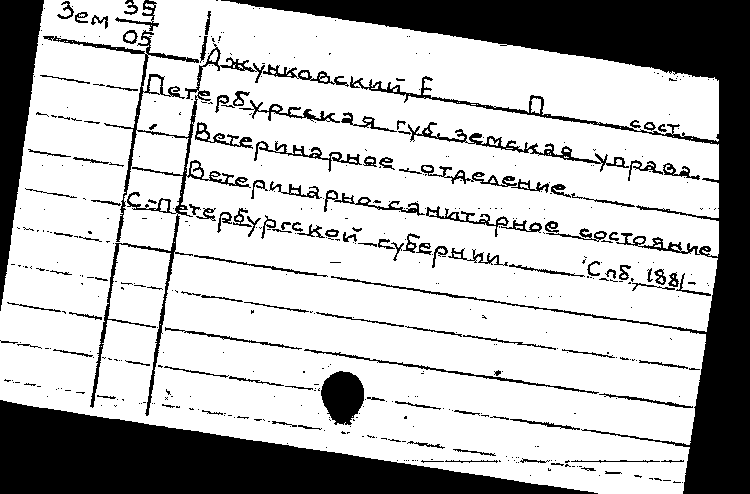 Зем 35
05
Джунковский, Е П сост.
Петербургская губ. земская управа.
Ветеринарное отделение.
Ветеринарно-санитарное состояние
С.-Петербургской губернии. Спб., 1881-